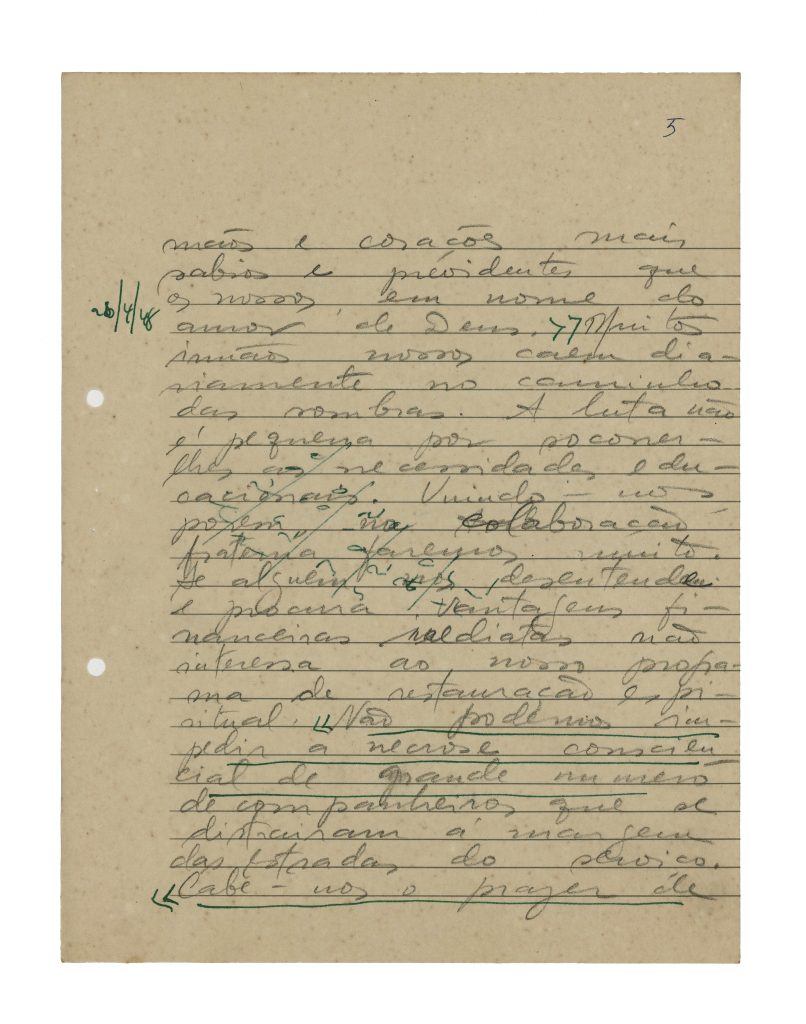 5
mãos e corações mais
sabios e previdentes que
os nossos, em nome do
28/4/48
amor de Deus. >> Muitos
irmãos nossos caem dia-
riamente no caminho
das sombras. A luta não
é pequena por socorrer-
lhes as necessidades edu-
cacionais. Unindo-nos
porém, na collaboração
fraterna faremos muito.
Se alguém nos desentendeu
e procura vantagens fi-
nanceiras imediatas não
interessa ao nosso progra-
ma de restauração espi-
ritual. << Não podemos im-
pedir a necrose conscien
cial de grande numero
de companheiros que se
distrairam á margem
das estradas do serviço.
<< Cabe-nos o prazer de